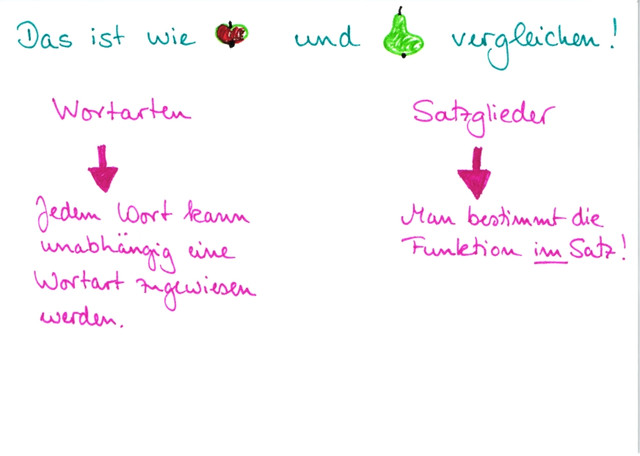 Das ist wie und vergleichen!
Wortarten
Jedem Wort kann
unabhängig eine
Wortart zugewiesen
werden.
Satzglieder
Man bestimmt die
Funktion im Satz!